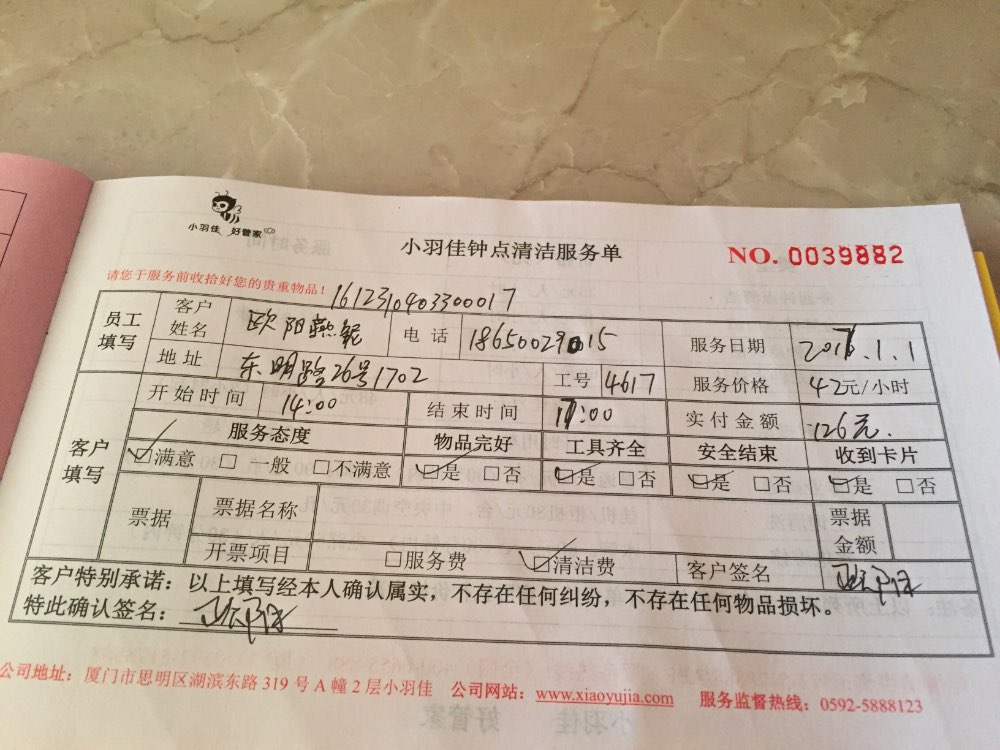 小羽佳 好管家
小羽佳钟点清洁服务单
NO. 0039882
请您于服务前收拾好您的贵重物品！
1612310403300017
员工填写 客户姓名 欧阳燕妮 电话 18650029015 服务日期 2017.1.1
地址 东明路26号1702 工号 4617 服务价格 42元/小时
客户填写 开始时间 14:00 结束时间 17:00 实付金额 126元.
服务态度 物品完好 工具齐全 安全结束 收到卡片
☑满意 □一般 □不满意 ☑是 □否 ☑是 □否 ☑是 □否 ☑是 □否
票据 票据名称 票据金额
开票项目 □服务费 ☑清洁费 客户签名
客户特别承诺：以上填写经本人确认属实，不存在任何纠纷，不存在任何物品损坏。
特此确认签名：
公司地址：厦门市思明区湖滨东路 319 号 A 幢 2 层小羽佳 公司网站：www.xiaoyujia.com 服务监督热线：0592-5888123